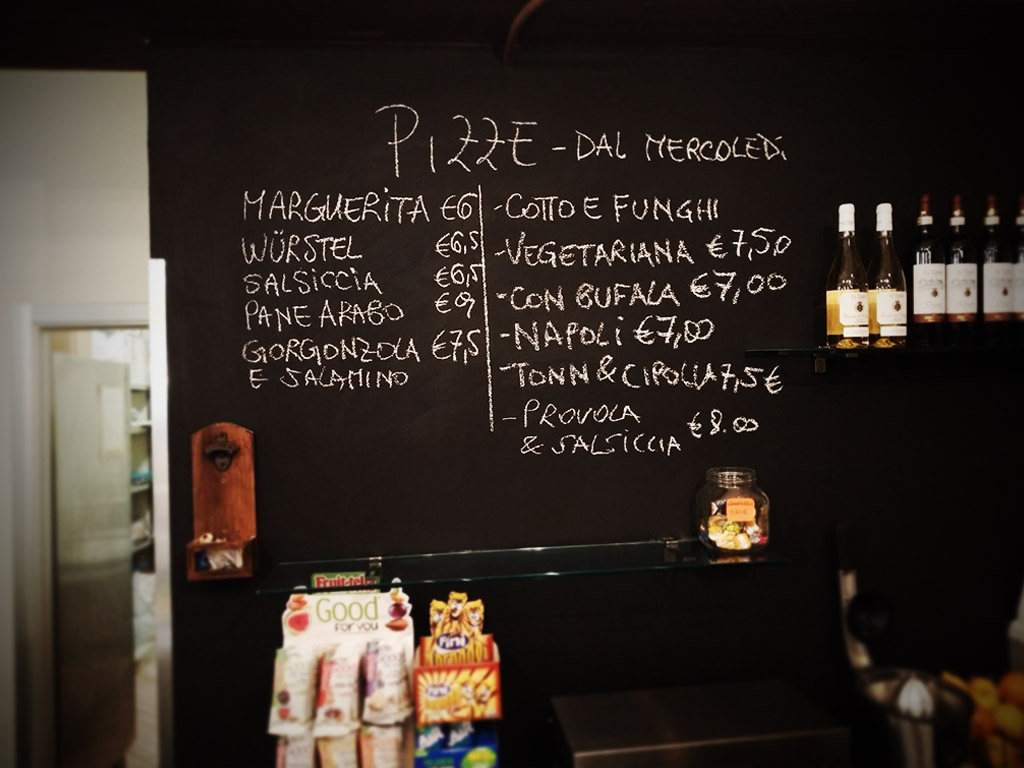 PIZZE - DAL MERCOLEDì
MARGUERITA €6
WÜRSTEL €6,5
SALSICCIA €6,5
PANE ARABO €9
GORGONZOLA €7,5
E SALAMINO
- COTTO E FUNGHI
- VEGETARIANA €7,50
- CON BUFALA €7,00
- NAPOLI €7,00
- TONN & CIPOLLA 7,5 €
- PROVOLA
& SALSICCIA €8.00
Fruit-tel
Good
FOR YOU
Fini
Fini